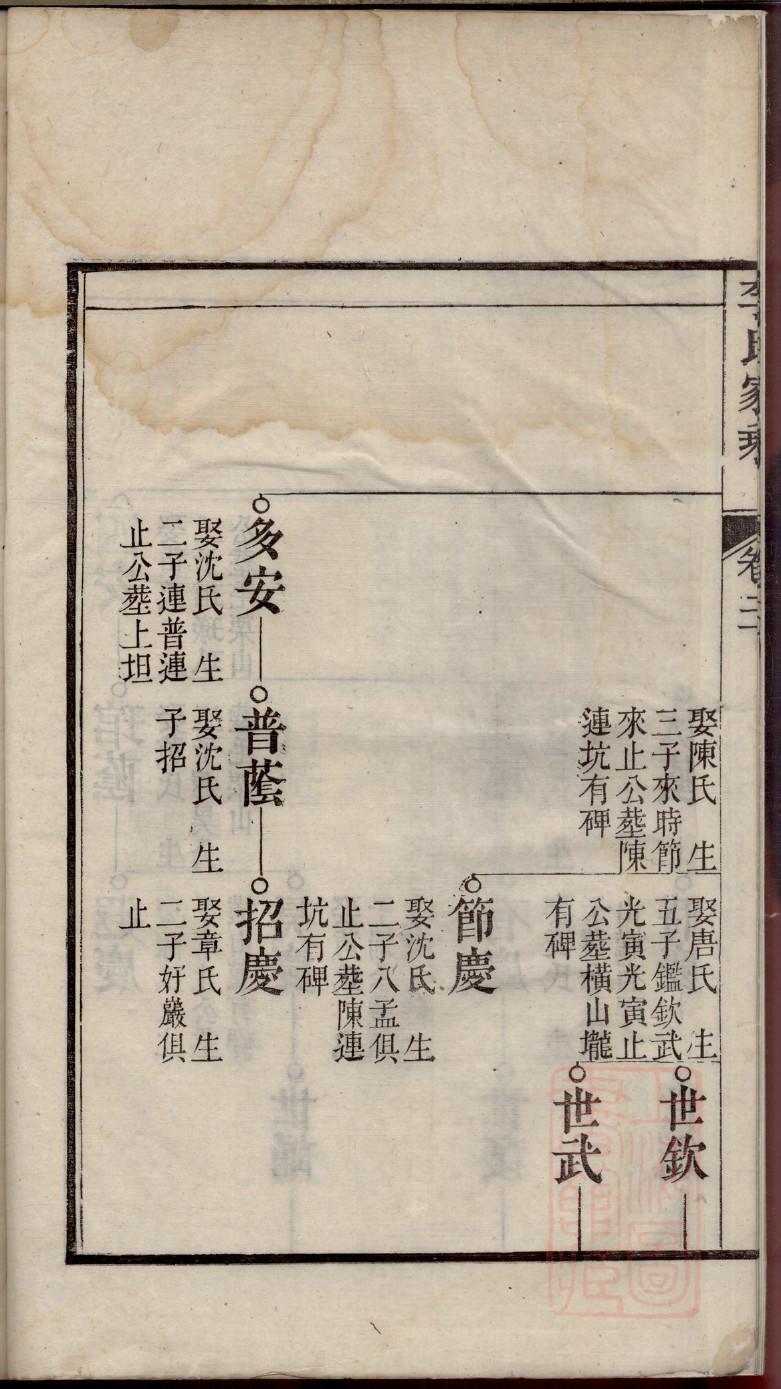 李氏家乘
卷三
娶陳氏　生
三子來時節
來止公塟陳
連坑有碑
娶唐氏　生
五子鑑欽武
光寅光寅止
公塟橫山壠
有碑
世欽
世武
節慶
娶沈氏　生
二子八孟俱
止公塟陳連
坑有碑
多安
娶沈氏　生
二子連普連
止公塟上坦
普蔭
娶沈氏　生
子招
招慶
娶章氏　生
二子好嚴俱
止